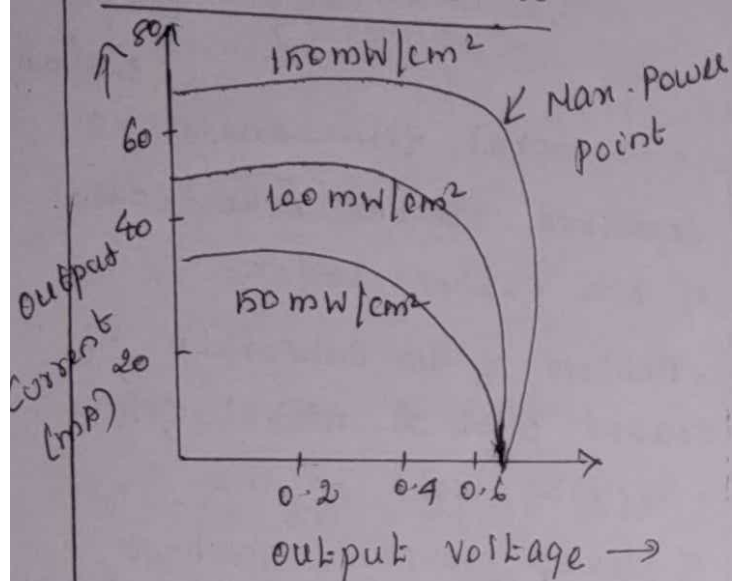 80
150mW/cm²
Max. Power
point
60
100mW/cm²
40
50mW/cm²
20
Output
Current
(mA)
0.2 0.4 0.6
Output voltage →